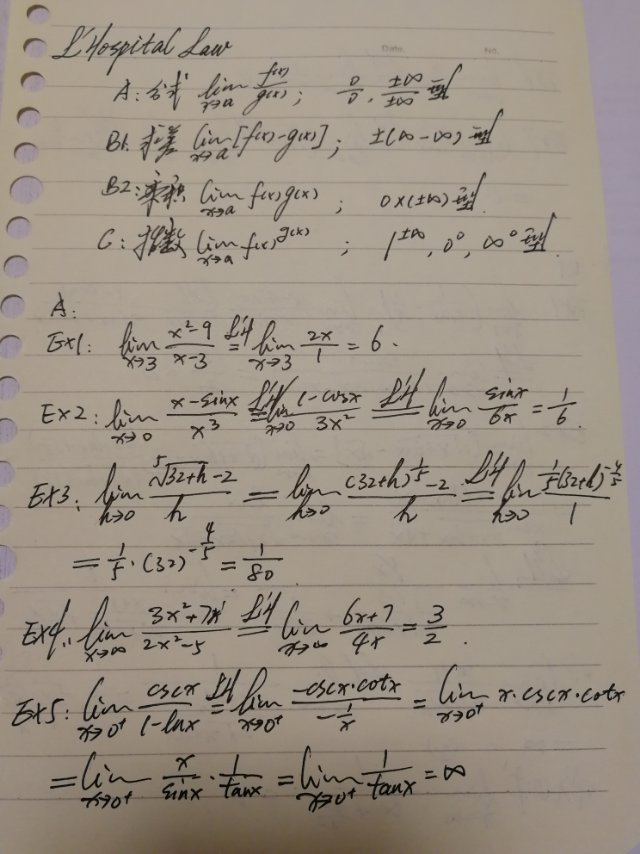 L'Hospital Law
Date. No.
A: 公式 lim x→a f(x)/g(x) ; 0/0, ±∞/±∞ 型
B1: 求差 lim x→a [f(x)-g(x)] ; ±(∞-∞) 型
B2: 乘积 lim x→a f(x)g(x) ; 0×(±∞) 型
C: 指数 lim x→a f(x)^g(x) ; 1^±∞, 0^0, ∞^0 型.
A:
Ex1: lim x→3 (x²-9)/(x-3) =L'H= lim x→3 2x/1 = 6.
Ex2: lim x→0 (x-sinx)/x³ =L'H= lim x→0 (1-cosx)/3x² =L'H= lim x→0 sinx/6x = 1/6.
Ex3: lim h→0 (⁵√(32+h) -2)/h = lim h→0 ((32+h)^(1/5) -2)/h =L'H= lim h→0 (1/5 (32+h)^(-4/5))/1
= 1/5 · (32)^(-4/5) = 1/80
Ex4: lim x→∞ (3x²+7x)/(2x²-5) =L'H= lim x→∞ (6x+7)/4x = 3/2.
Ex5: lim x→0⁺ cscx/(1-lnx) =L'H= lim x→0⁺ (-cscx·cotx)/(-1/x) = lim x→0⁺ x·cscx·cotx
= lim x→0⁺ x/sinx · 1/tanx = lim x→0⁺ 1/tanx = ∞